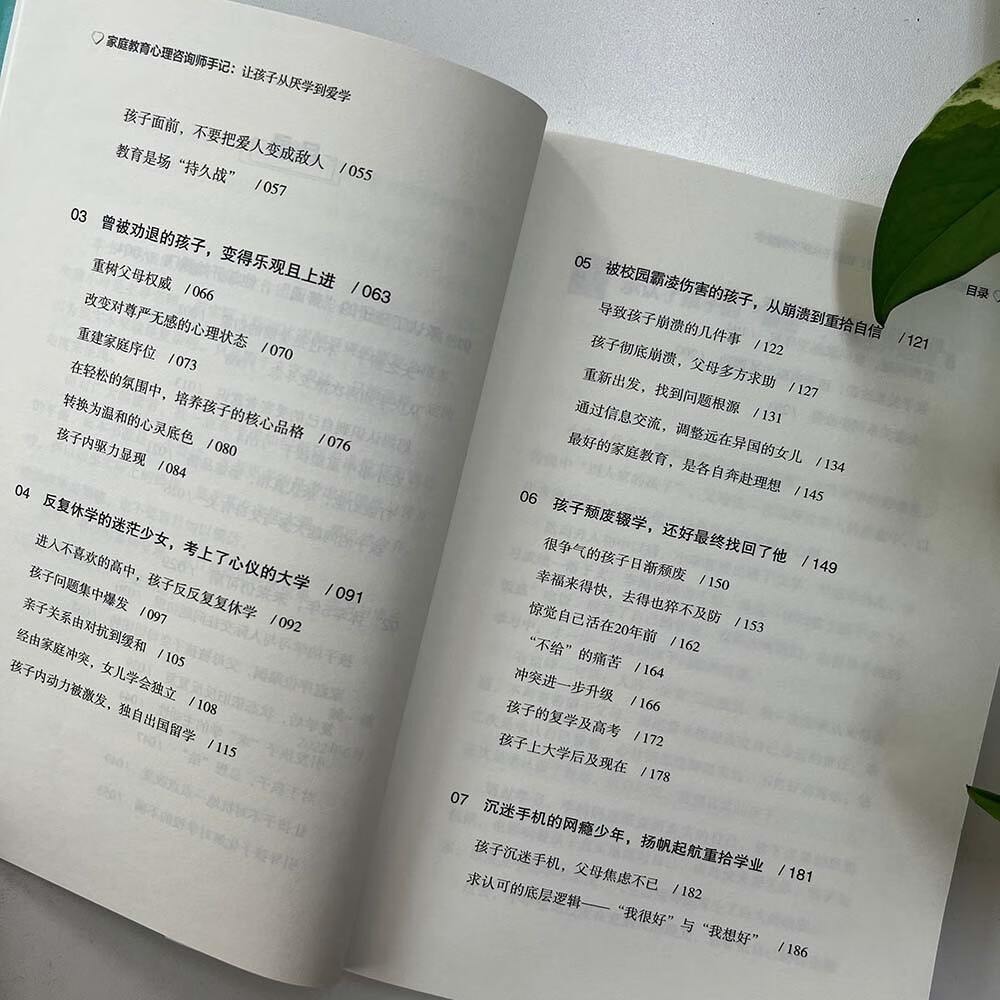 家庭教育心理咨询师手记：让孩子从厌学到爱学
孩子面前，不要把爱人变成敌人 /055
教育是场“持久战” /057
03 曾被劝退的孩子，变得乐观且上进 /063
重树父母权威 /066
改变对尊严无感的心理状态 /070
重建家庭序位 /073
在轻松的氛围中，培养孩子的核心品格 /076
转换为温和的心灵底色 /080
孩子内驱力显现 /084
04 反复休学的迷茫少女，考上了心仪的大学 /091
进入不喜欢的高中，孩子反反复复休学 /092
孩子问题集中爆发 /097
亲子关系由对抗到缓和 /105
经由家庭冲突，女儿学会独立 /108
孩子内动力被激发，独自出国留学 /115
目录
05 被校园霸凌伤害的孩子，从崩溃到重拾自信 /121
导致孩子崩溃的几件事 /122
孩子彻底崩溃，父母多方求助 /127
重新出发，找到问题根源 /131
通过信息交流，调整远在异国的女儿 /134
最好的家庭教育，是各自奔赴理想 /145
06 孩子颓废辍学，还好最终找回了他 /149
很争气的孩子日渐颓废 /150
幸福来得快，去得也猝不及防 /153
惊觉自己活在20年前 /162
“不给”的痛苦 /164
冲突进一步升级 /166
孩子的复学及高考 /172
孩子上大学后及现在 /178
07 沉迷手机的网瘾少年，扬帆起航重拾学业 /181
孩子沉迷手机，父母焦虑不已 /182
求认可的底层逻辑——“我很好”与“我想好” /186